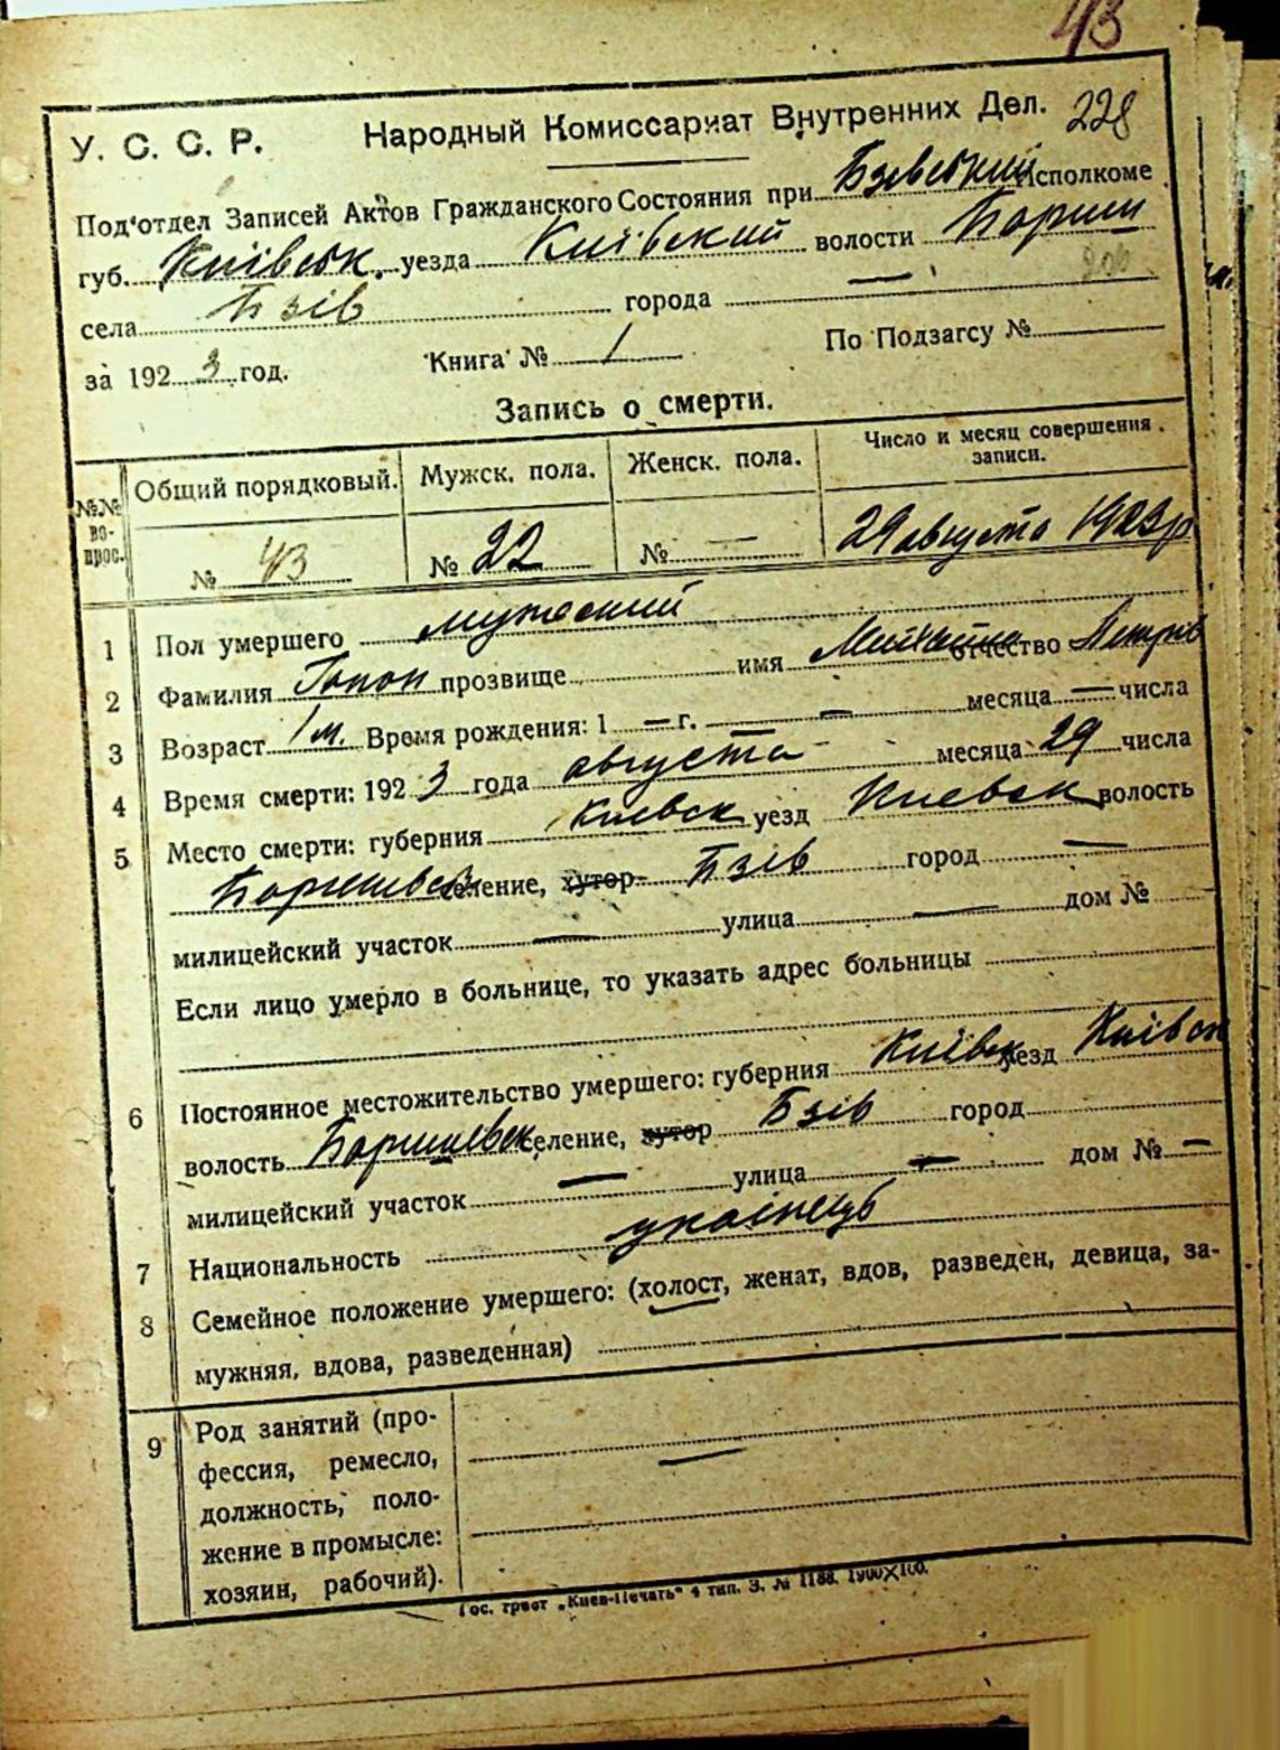 43
У. С. С. Р. Народный Комиссариат Внутренних Дел. 228
Под'отдел Записей Актов Гражданского Состояния при Бзевский Исполкоме
губ. Київськ. уезда Київский волости Бориш
села Бзів города —
за 1923 год. Книга № 1 По Подзагсу №
Запись о смерти.
№№ вопрос. Общий порядковый. Мужск. пола. Женск. пола. Число и месяц совершения записи.
№ 43 № 22 № — 29 августа 1923 р
1 Пол умершего мужеский
2 Фамилия Гапон прозвище имя Михайло отчество Петрів
3 Возраст 1 м. Время рождения: 1 — г. — месяца — числа
4 Время смерти: 1923 года августа месяца 29 числа
5 Место смерти: губерния Киевск уезд Киевск волость
Боришевск селение, хутор Бзів город —
милицейский участок — улица — дом №
Если лицо умерло в больнице, то указать адрес больницы
6 Постоянное местожительство умершего: губерния Київск уезд Київск
волость Боришевск селение, хутор Бзів город
милицейский участок — улица — дом № —
7 Национальность украінець
8 Семейное положение умершего: (холост, женат, вдов, разведен, девица, за-
мужняя, вдова, разведенная)
9 Род занятий (про-
фессия, ремесло,
должность, поло-
жение в промысле: —
хозяин, рабочий).
Гос. трест „Киев-Печать“ 4 тип. З. № 1188. 1900×100.